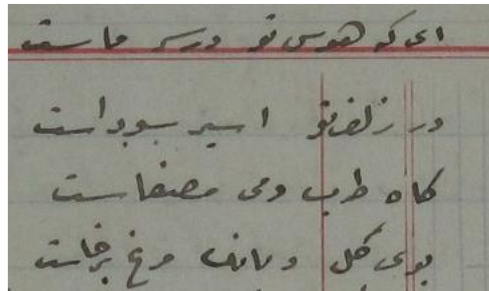 ای که هوس تو در سر ماست
در زلف تو اسیر سوداست
گاه طرب و می مصفاست
بوی گل و بانک مرغ برخاست